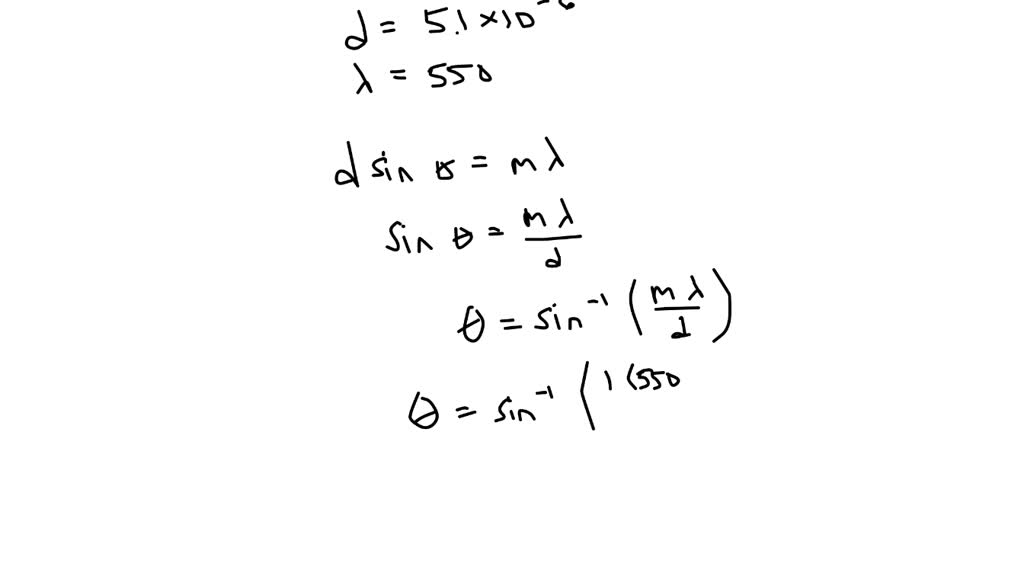 d = 5.1 × 10⁻⁶
λ = 550
d sin θ = m λ
sin θ = m λ / d
θ = sin⁻¹ ( m λ / d )
θ = sin⁻¹ ( 1 (550